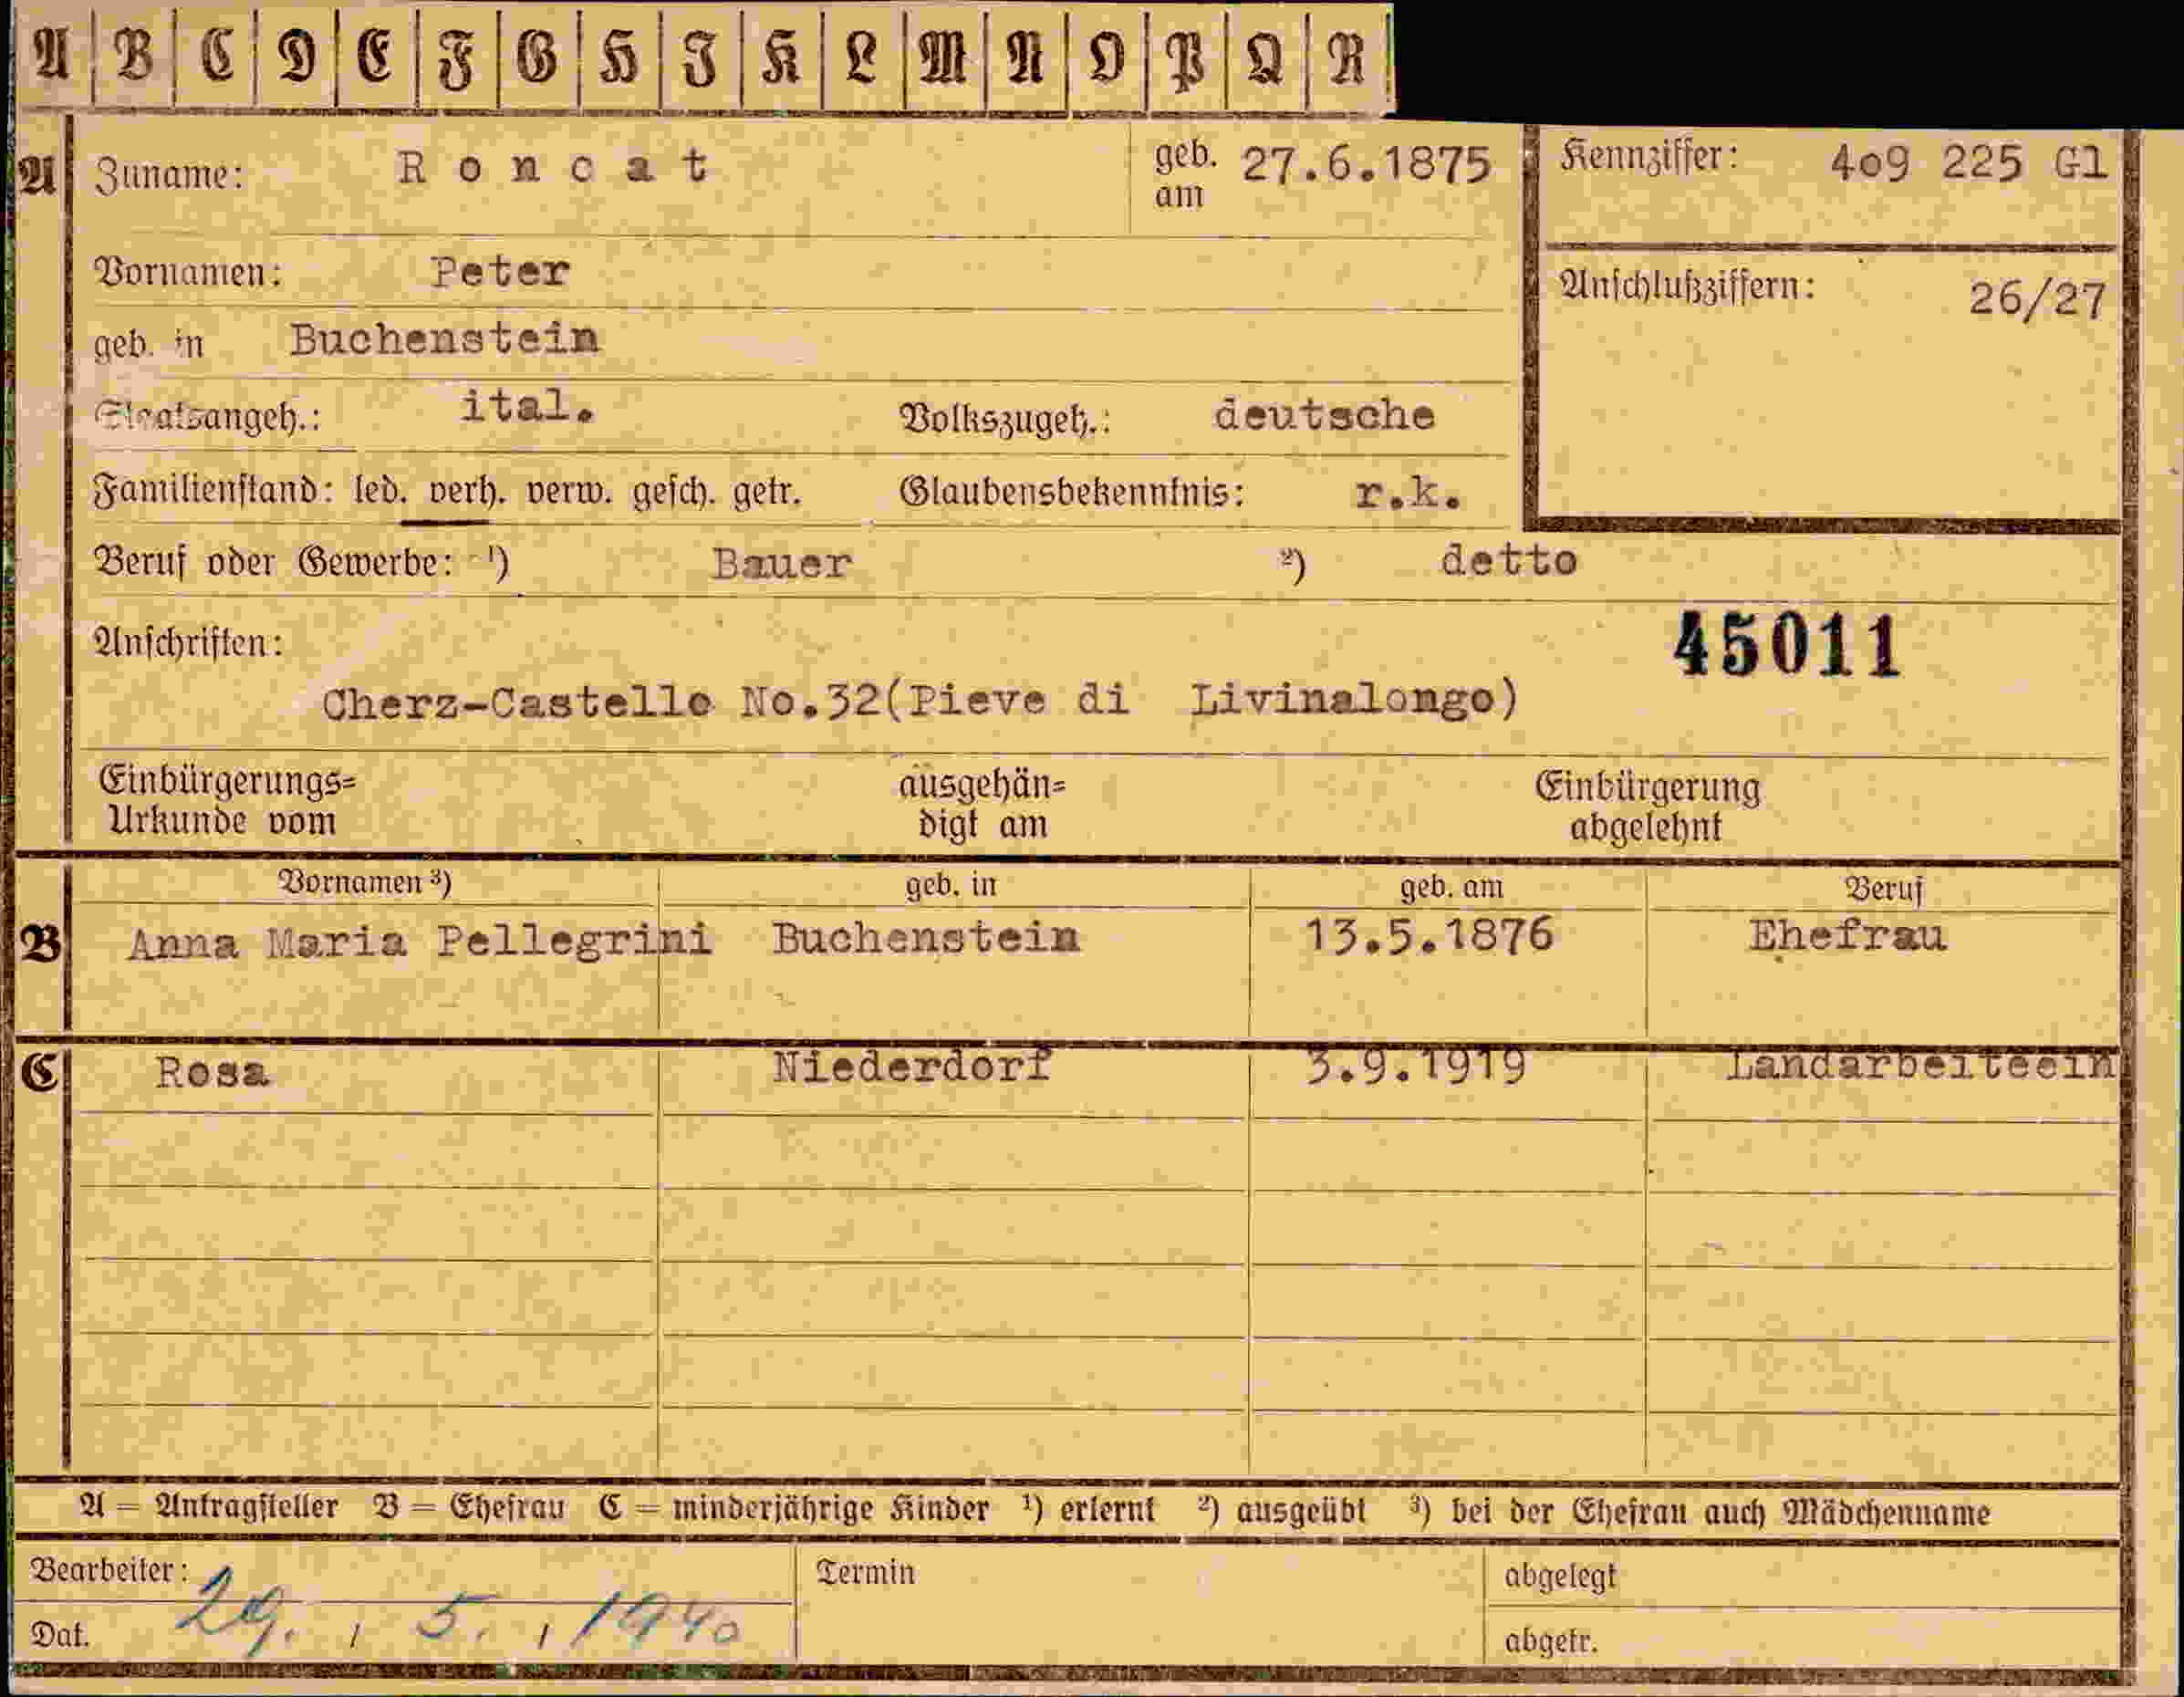 A B C D E F G H I K L M N O P Q R
A Zuname: Roncat geb. am 27.6.1875 Kennziffer: 409 225 Gl
Vornamen: Peter Anschlußziffern: 26/27
geb. in Buchenstein
Staatsangeh.: ital. Volkszugeh.: deutsche
Familienstand: led. verh. verw. gesch. getr. Glaubensbekenntnis: r.k.
Beruf oder Gewerbe: ¹) Bauer ²) detto
Anschriften: 45011
Cherz-Castello No.32(Pieve di Livinalongo)
Einbürgerungs= ausgehän= Einbürgerung
Urkunde vom digt am abgelehnt
Vornamen ³) geb. in geb. am Beruf
B Anna Maria Pellegrini Buchenstein 13.5.1876 Ehefrau
C Rosa Niederdorf 3.9.1919 Landarbeiteein
A = Antragsteller B = Ehefrau C = minderjährige Kinder ¹) erlernt ²) ausgeübt ³) bei der Ehefrau auch Mädchenname
Bearbeiter: Termin abgelegt
Dat. 29. 5. 1940 abgetr.